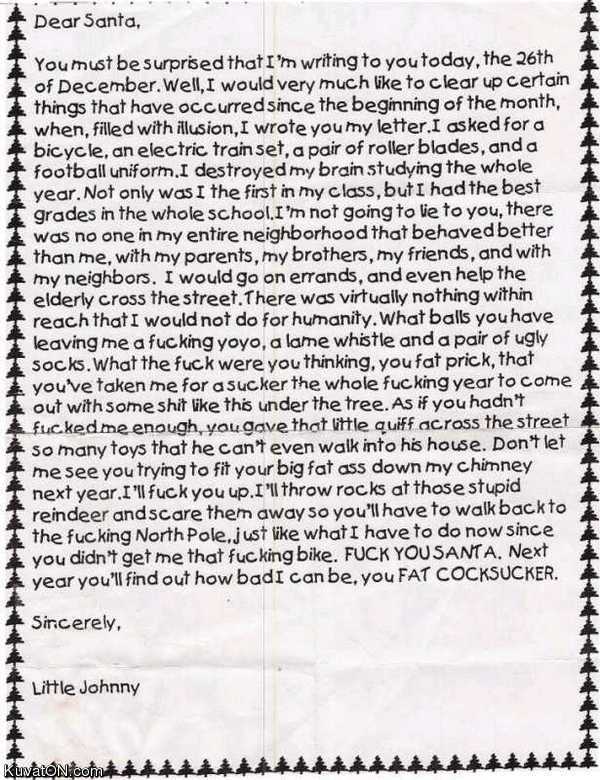 Dear Santa,
You must be surprised that I'm writing to you today, the 26th
of December. Well, I would very much like to clear up certain
things that have occurred since the beginning of the month,
when, filled with illusion, I wrote you my letter. I asked for a
bicycle, an electric train set, a pair of roller blades, and a
football uniform. I destroyed my brain studying the whole
year. Not only was I the first in my class, but I had the best
grades in the whole school. I'm not going to lie to you, there
was no one in my entire neighborhood that behaved better
than me, with my parents, my brothers, my friends, and with
my neighbors. I would go on errands, and even help the
elderly cross the street. There was virtually nothing within
reach that I would not do for humanity. What balls you have
leaving me a fucking yoyo, a lame whistle and a pair of ugly
socks. What the fuck were you thinking, you fat prick, that
you've taken me for a sucker the whole fucking year to come
out with some shit like this under the tree. As if you hadn't
fucked me enough, you gave that little quiff across the street
so many toys that he can't even walk into his house. Don't let
me see you trying to fit your big fat ass down my chimney
next year. I'll fuck you up. I'll throw rocks at those stupid
reindeer and scare them away so you'll have to walk back to
the fucking North Pole, just like what I have to do now since
you didn't get me that fucking bike. FUCK YOU SANTA. Next
year you'll find out how bad I can be, you FAT COCKSUCKER.
Sincerely,
Little Johnny
KuvatON.com